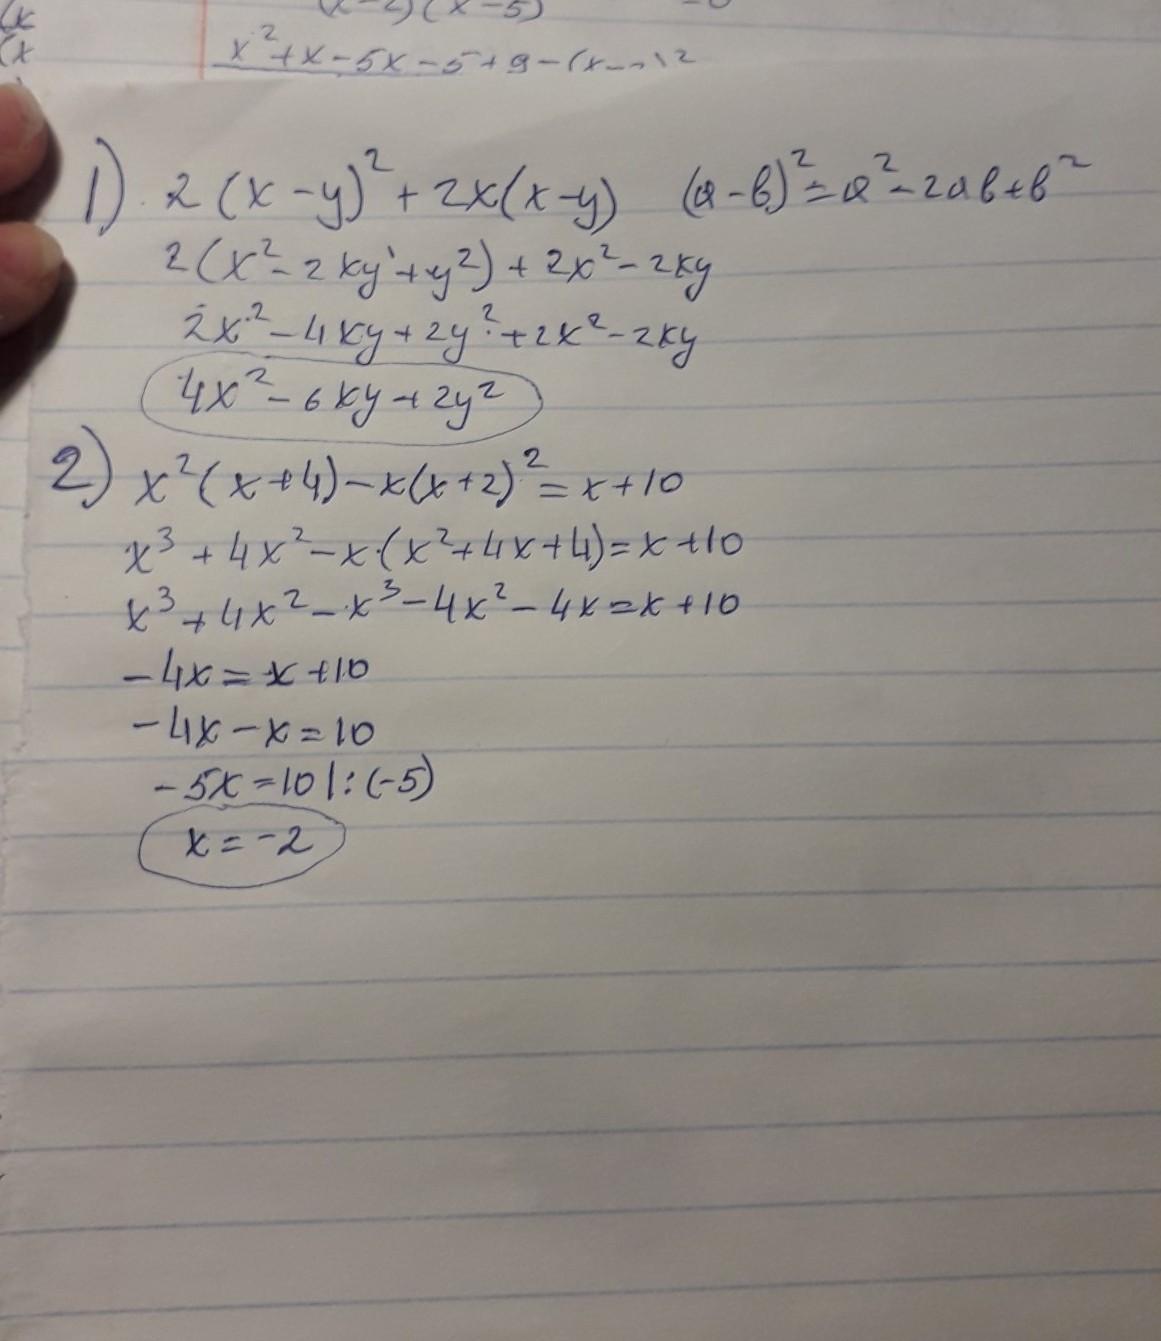 (x-2)(x-5)
x²+x-5x-5+9-(x
1) 2(x-y)²+2x(x-y) (a-b)²=a²-2ab+b²
2(x²-2xy+y²)+2x²-2xy
2x²-4xy+2y²+2x²-2xy
4x²-6xy+2y²
2) x²(x+4)-x(x+2)²=x+10
x³+4x²-x·(x²+4x+4)=x+10
x³+4x²-x³-4x²-4x=x+10
-4x=x+10
-4x-x=10
-5x=10|:(-5)
x=-2